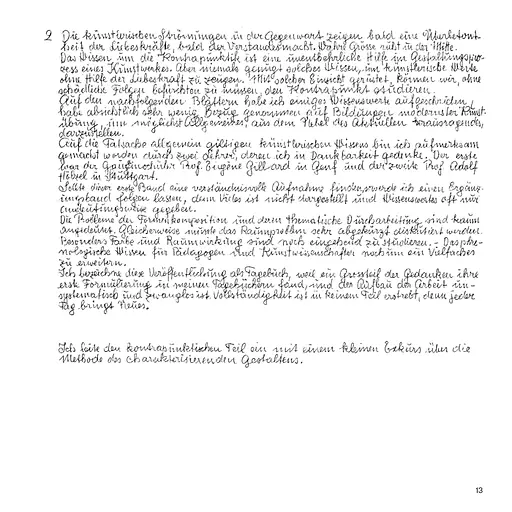 2 Die künstlerischen Strömungen in der Gegenwart zeigen bald eine Überbetont-
heit der Liebeskräfte, bald der Verstandesmacht. Wahre Grösse ruht in der Mitte.
Das Wissen um die Kontrapunktik ist eine unentbehrliche Hilfe im Gestaltungspro-
zess eines Kunstwerkes. Aber niemals genügt solches Wissen, um künstlerische Werte
ohne Hilfe der Liebeskraft zu zeugen. Mit solcher Einsicht gerüstet, können wir, ohne
schädliche Folgen befürchten zu müssen, den Kontrapunkt studieren.
Auf den nachfolgenden Blättern habe ich einiges Wissenswerte aufgeschrieben,
habe absichtlich sehr wenig Bezug genommen auf Bildungen modernster Kunst-
übung, um möglichst Allgemeines, aus dem Nebel des Aktuellen herausragendes,
darzustellen.
Auf die Tatsache allgemein gültigen künstlerischen Wissens bin ich aufmerksam
gemacht worden durch zwei Lehrer, deren ich in Dankbarkeit gedenke. Der erste
war der Prof. Eugène Gilliard in Genf und der zweite Prof. Adolf
Hölzel in Stuttgart.
Sollte dieser erste Band eine verständnisvolle Aufnahme finden, werde ich einen Ergänz-
ungsband folgen lassen, denn Vieles ist nicht dargestellt und Wissenswertes oft nur
andeutungsweise gegeben.
Die Probleme der Formenkomposition und deren thematische Durcharbeitung sind kaum
angedeutet. Gleicherweise musste das Raumproblem sehr abgekürzt diskutiert werden.
Besonders Farbe und Raumwirkung sind noch eingehend zu studieren. - Das phä-
nologische Wissen für Pädagogen und Kunstwissenschafter noch um ein Vielfaches
zu erweitern.
Ich bezeichne diese Veröffentlichung als Tagebuch, weil ein Grossteil der Gedanken ihre
erste Formulierung in meinen Tagebüchern fand, und der Aufbau der Arbeit un-
systematisch und zwanglos ist. Vollständigkeit ist in keinem Teil erstrebt, denn jeder
Tag bringt Neues.
Ich leite den kontrapunktischen Teil ein mit einem kleinen Exkurs über die
Methode des charakterisierenden Gestaltens.
13